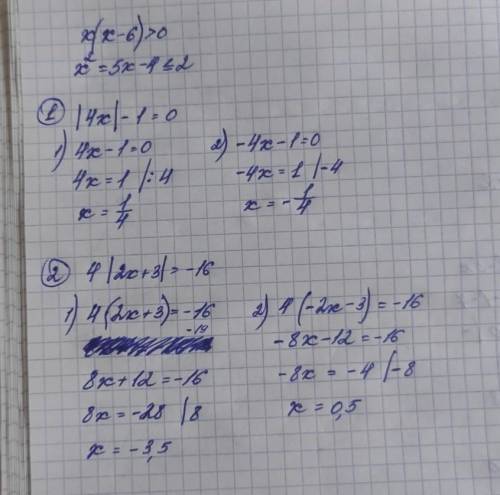 x(x-6)>0
x² = 5x-4 ≤ 2
1 |4x| - 1 = 0
1) 4x-1=0
4x = 1 |:4
x = 1/4
2) -4x-1=0
-4x = 1 |-4
x = - 1/4
2 4 |2x+3| = -16
1) 4(2x+3) = -16
8x+12 = -16
8x = -28 |8
x = -3,5
2) 4(-2x-3) = -16
-8x-12 = -16
-8x = -4 |-8
x = 0,5